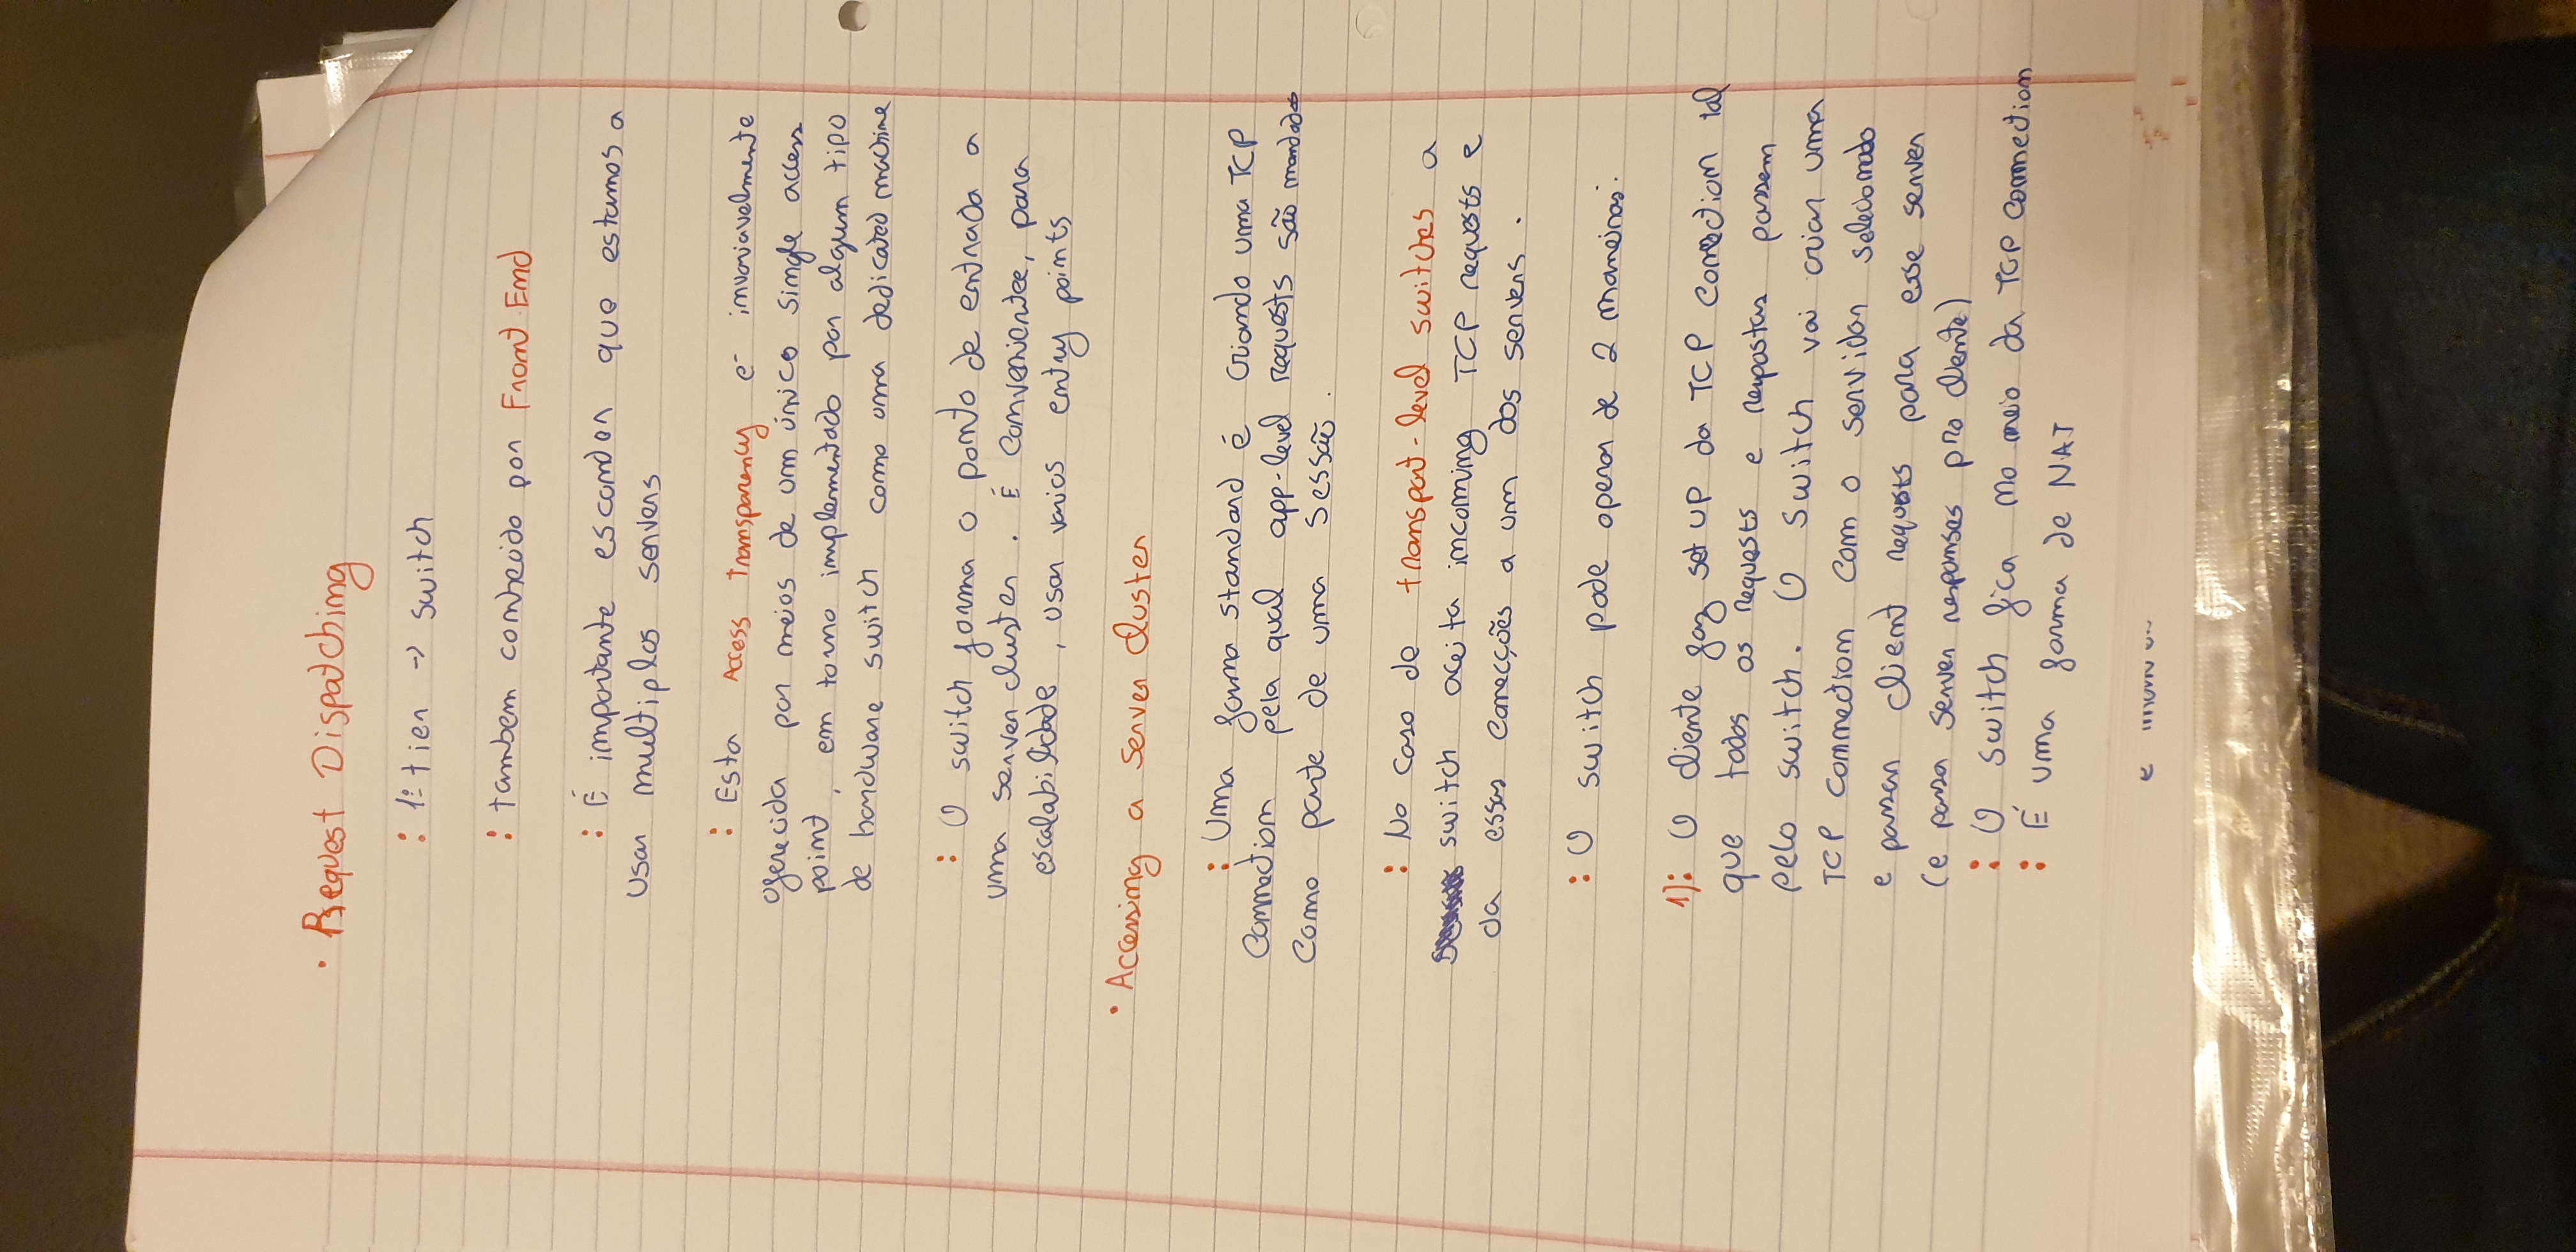 · Request Dispatching
: 1º tier → switch
: tambem conhecido por Front End
: É importante esconder que estamos a
usar multiplos servers
: Esta Access Transparency é invariavelmente
oferecida por meios de um único single access
point, em torno implementado por algum tipo
de hardware switch como uma dedicated machine
: O switch forma o ponto de entrada a
uma server cluster. É convenientee, para
escalabilidade, usar varios entry points
· Accessing a Server Cluster
: Uma forma standard é criando uma TCP
Connection pela qual app-level requests são mandados
como parte de uma sessão.
: No caso de transport-level switches a
switch aceita incoming TCP requests e
da essas conecções a um dos servers.
: O switch pode operar de 2 maneiras:
1): O cliente faz set up da TCP connection tal
que todos os requests e respostas passem
pelo switch. O switch vai criar uma
TCP connection com o servidor selecionado
e passar client requests para esse server
(e passa server responses pro cliente)
: O switch fica no meio da TCP connection
: É uma forma de NAT